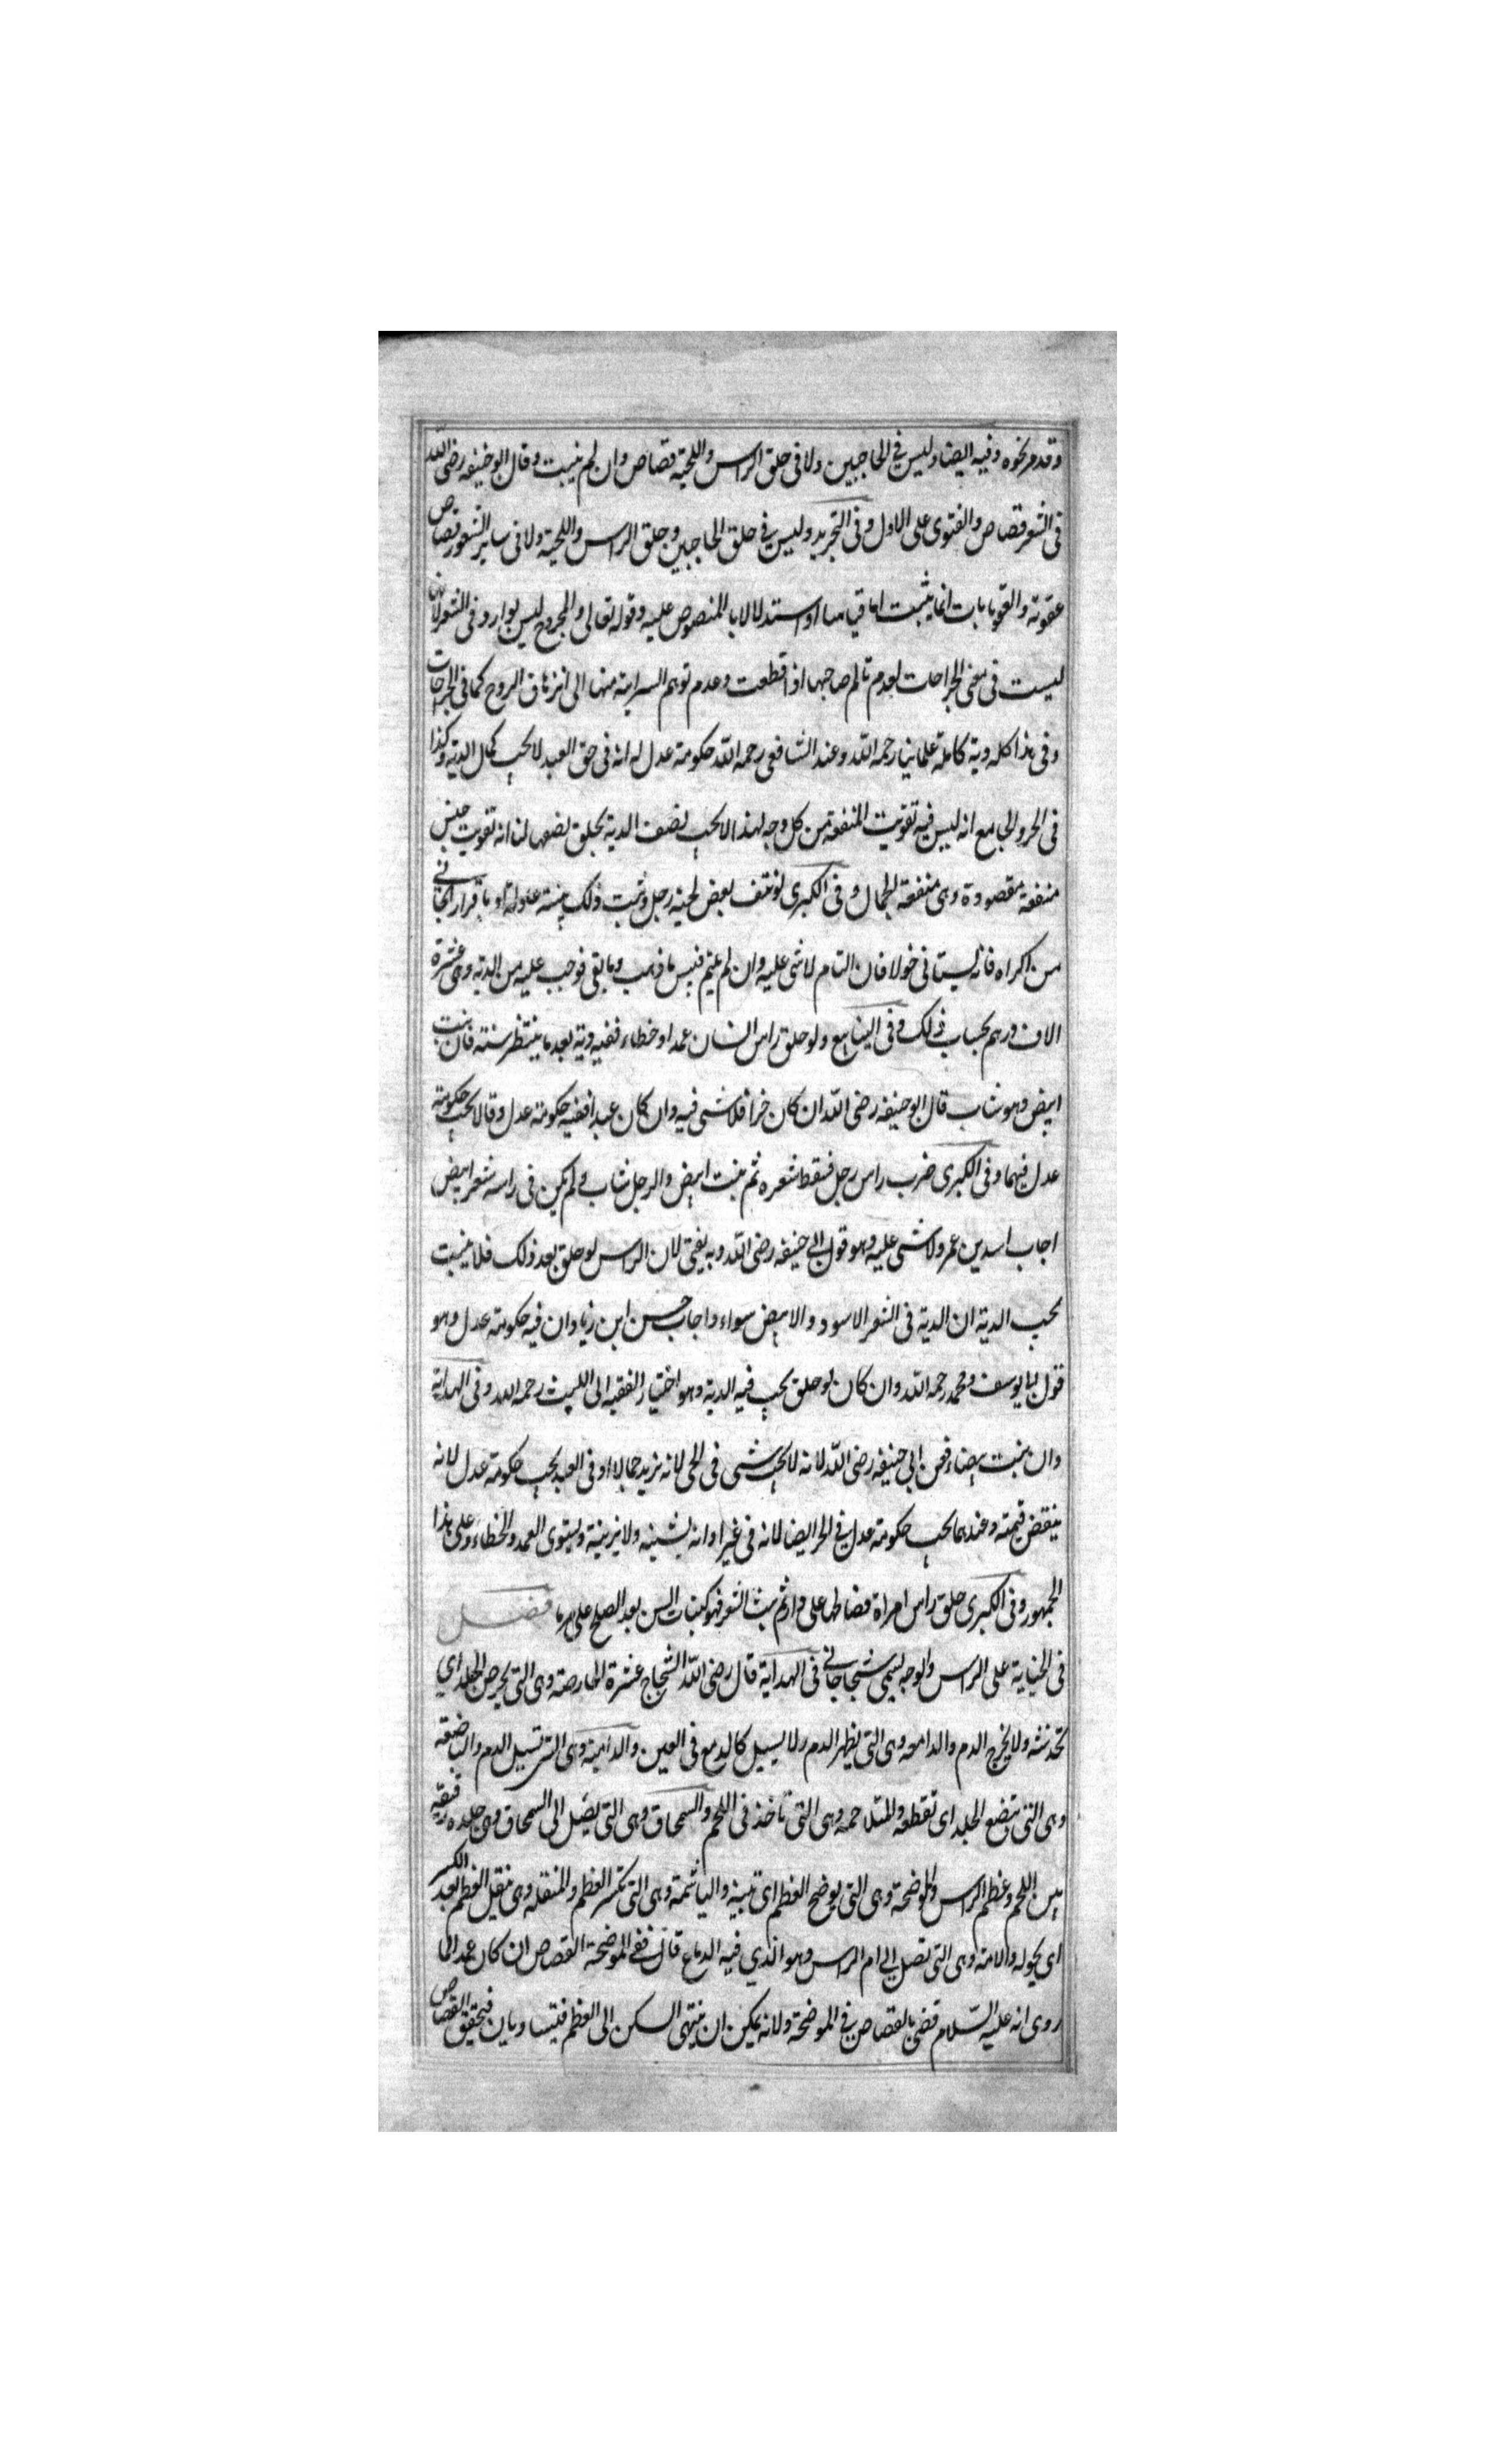 وقد مر نحوه وفيه ايضا وليس في الحاجبين ولا في حلق الراس واللحية قصاص وان لم ينبت وقال ابو حنيفه رضى الله
فى الشعر قصاص والفتوى على الاول وفى التجريد وليس في حلق الحاجبين وحلق الراس واللحية ولا فى ساير الشعور قصاص
عقوبة والعقوبات انما يثبت اما قياسا او استدلالا بالمنصوص عليه وقوله تعالى والجروح ليس بوارد فى الشعر لانها
ليست فى معنى الجراحات لعدم تالم صاحبها اذا قطعت وعدم توهم السراية منها الى انزهاق الروح كما فى الجراحات
وفى هذا كله دية كاملة علمائنا رحمه الله وعند الشافعى رحمه الله حكومة عدل له انه فى حق العبد لا يجب كمال الدية وكذا
فى الحر والجامع انه ليس فيه تفويت المنفعة من كل وجه لهذا لا يجب نصف الدية بحلق نصفها لنا انه تفويت جنس
منفعة مقصودة وهى منفعة الجمال وفى الكبرى لو نتف بعض لحية رجل وثبت ذلك ببينة عادلة او باقرار الجانى
من اكراه فانه يستانى حولا فان التام لا شى عليه وان لم يلتيم قيس ما ذهب وما بقى فوجب عليه من الدية وهى عشرة
الاف درهم بحساب ذلك وفى الينابيع ولو حلق راس انسان عمدا او خطاء ففيه دية بعد ما ينتظر سنة فان نبت
ابيض وهو شاب قال ابو حنيفه رضى الله ان كان حرا فلا شى فيه وان كان عبدا ففيه حكومة عدل وقالا يجب حكومة
عدل فيهما وفى الكبرى ضرب راس رجل فسقط شعره ثم نبت ابيض والرجل شاب ولم يكن فى راسه شعر ابيض
اجاب اسد بن عمر ولا شى عليه وهو قول ابي حنيفه رضى الله وبه يفتى لان الراس لو حلق بعد ذلك فلا ينبت
يجب الدية ان الدية فى الشعر الاسود والابيض سواء واجاب حسن ابن زياد ان فيه حكومة عدل وهو
قول ابا يوسف ومحمد رحمه الله وان كان لو حلق يجب فيه الدية وهو اختيار الفقيه ابى الليث رحمه الله وفى الهداية
وان نبتت بيضاء فعن ابي حنيفه رضى الله لانه لا يجب شى فى الحر لانه يزيد جمالا وفى العبد يجب حكومة عدل لانه
ينقص قيمته وعندهما يجب حكومة عدل في الحر ايضا لانه فى غير اوانه يشينه ولا يزينه ويستوى العمد والخطاء وعلى هذا
الجمهور وفى الكبرى حلق راس امراة فصالحها على دار ثم نبت الشعر فهو كنبات السن بعد الصلح على مر ما فصل
فى الجناية على الراس والوجه يسمى شجاجا في الهداية قال رضى الله الشجاج عشرة الحارصة وهى التى يحرص الجلد اى
تخدشه ولا يخرج الدم والدامعه وهى التى يظهر الدم ولا يسيل كالدمع فى العين والدامية وهى التى تسيل الدم والباضعة
وهى التى يتبضع الجلد اى تقطعه والمتلاحمه وهى التى تاخذ فى اللحم والسمحاق وهى التى يصل الى السمحاق وهى جلده رقيقه
بين اللحم وعظم الراس والموضحة وهى التى يوضح العظم اى تبينه والهاشمة وهى التى تكسر العظم والمنقله وهى ينقل العظم بعد الكسر
اى يحوله والامه وهى التى تصل الى ام الراس وهو الذي فيه الدماغ قال ففى الموضحة القصاص ان كان عمدا لما
روى انه عليه السلام قضى بالقصاص في الموضحة ولانه يمكن ان ينتهى السكين الى العظم فيتساويان فيتحقق القصاص